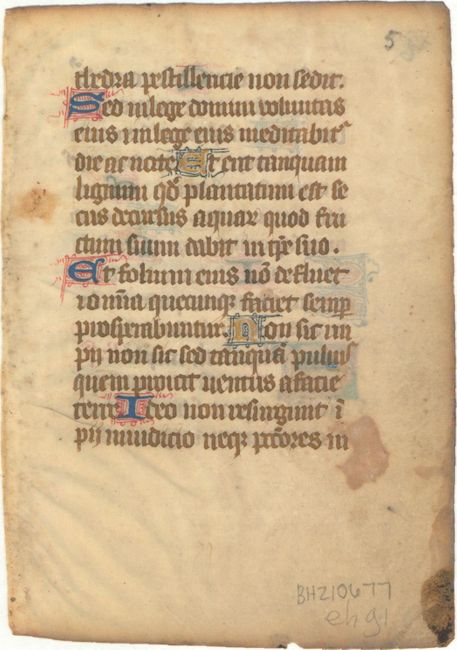 5
thedra pestillencie non sedit.
Sed in lege domini voluntas
eius ⁊ in lege eius meditabit᷑
die ac nocte Et erit tanquam
lignum qd̓ plantatum est se
cus decursus aquar quod fru
ctum suum dabit in tp̄e suo.
Et folium eius nō defluet
⁊ om̄ia quecunqꝫ faciet semp̲
prosperabuntur. Non sic im
pii non sic sed tanquā puluis
quem proicit uentus a facie
terre Ideo non resurgunt ī
pii in iudicio neqꝫ pctōres in
BHZ10677